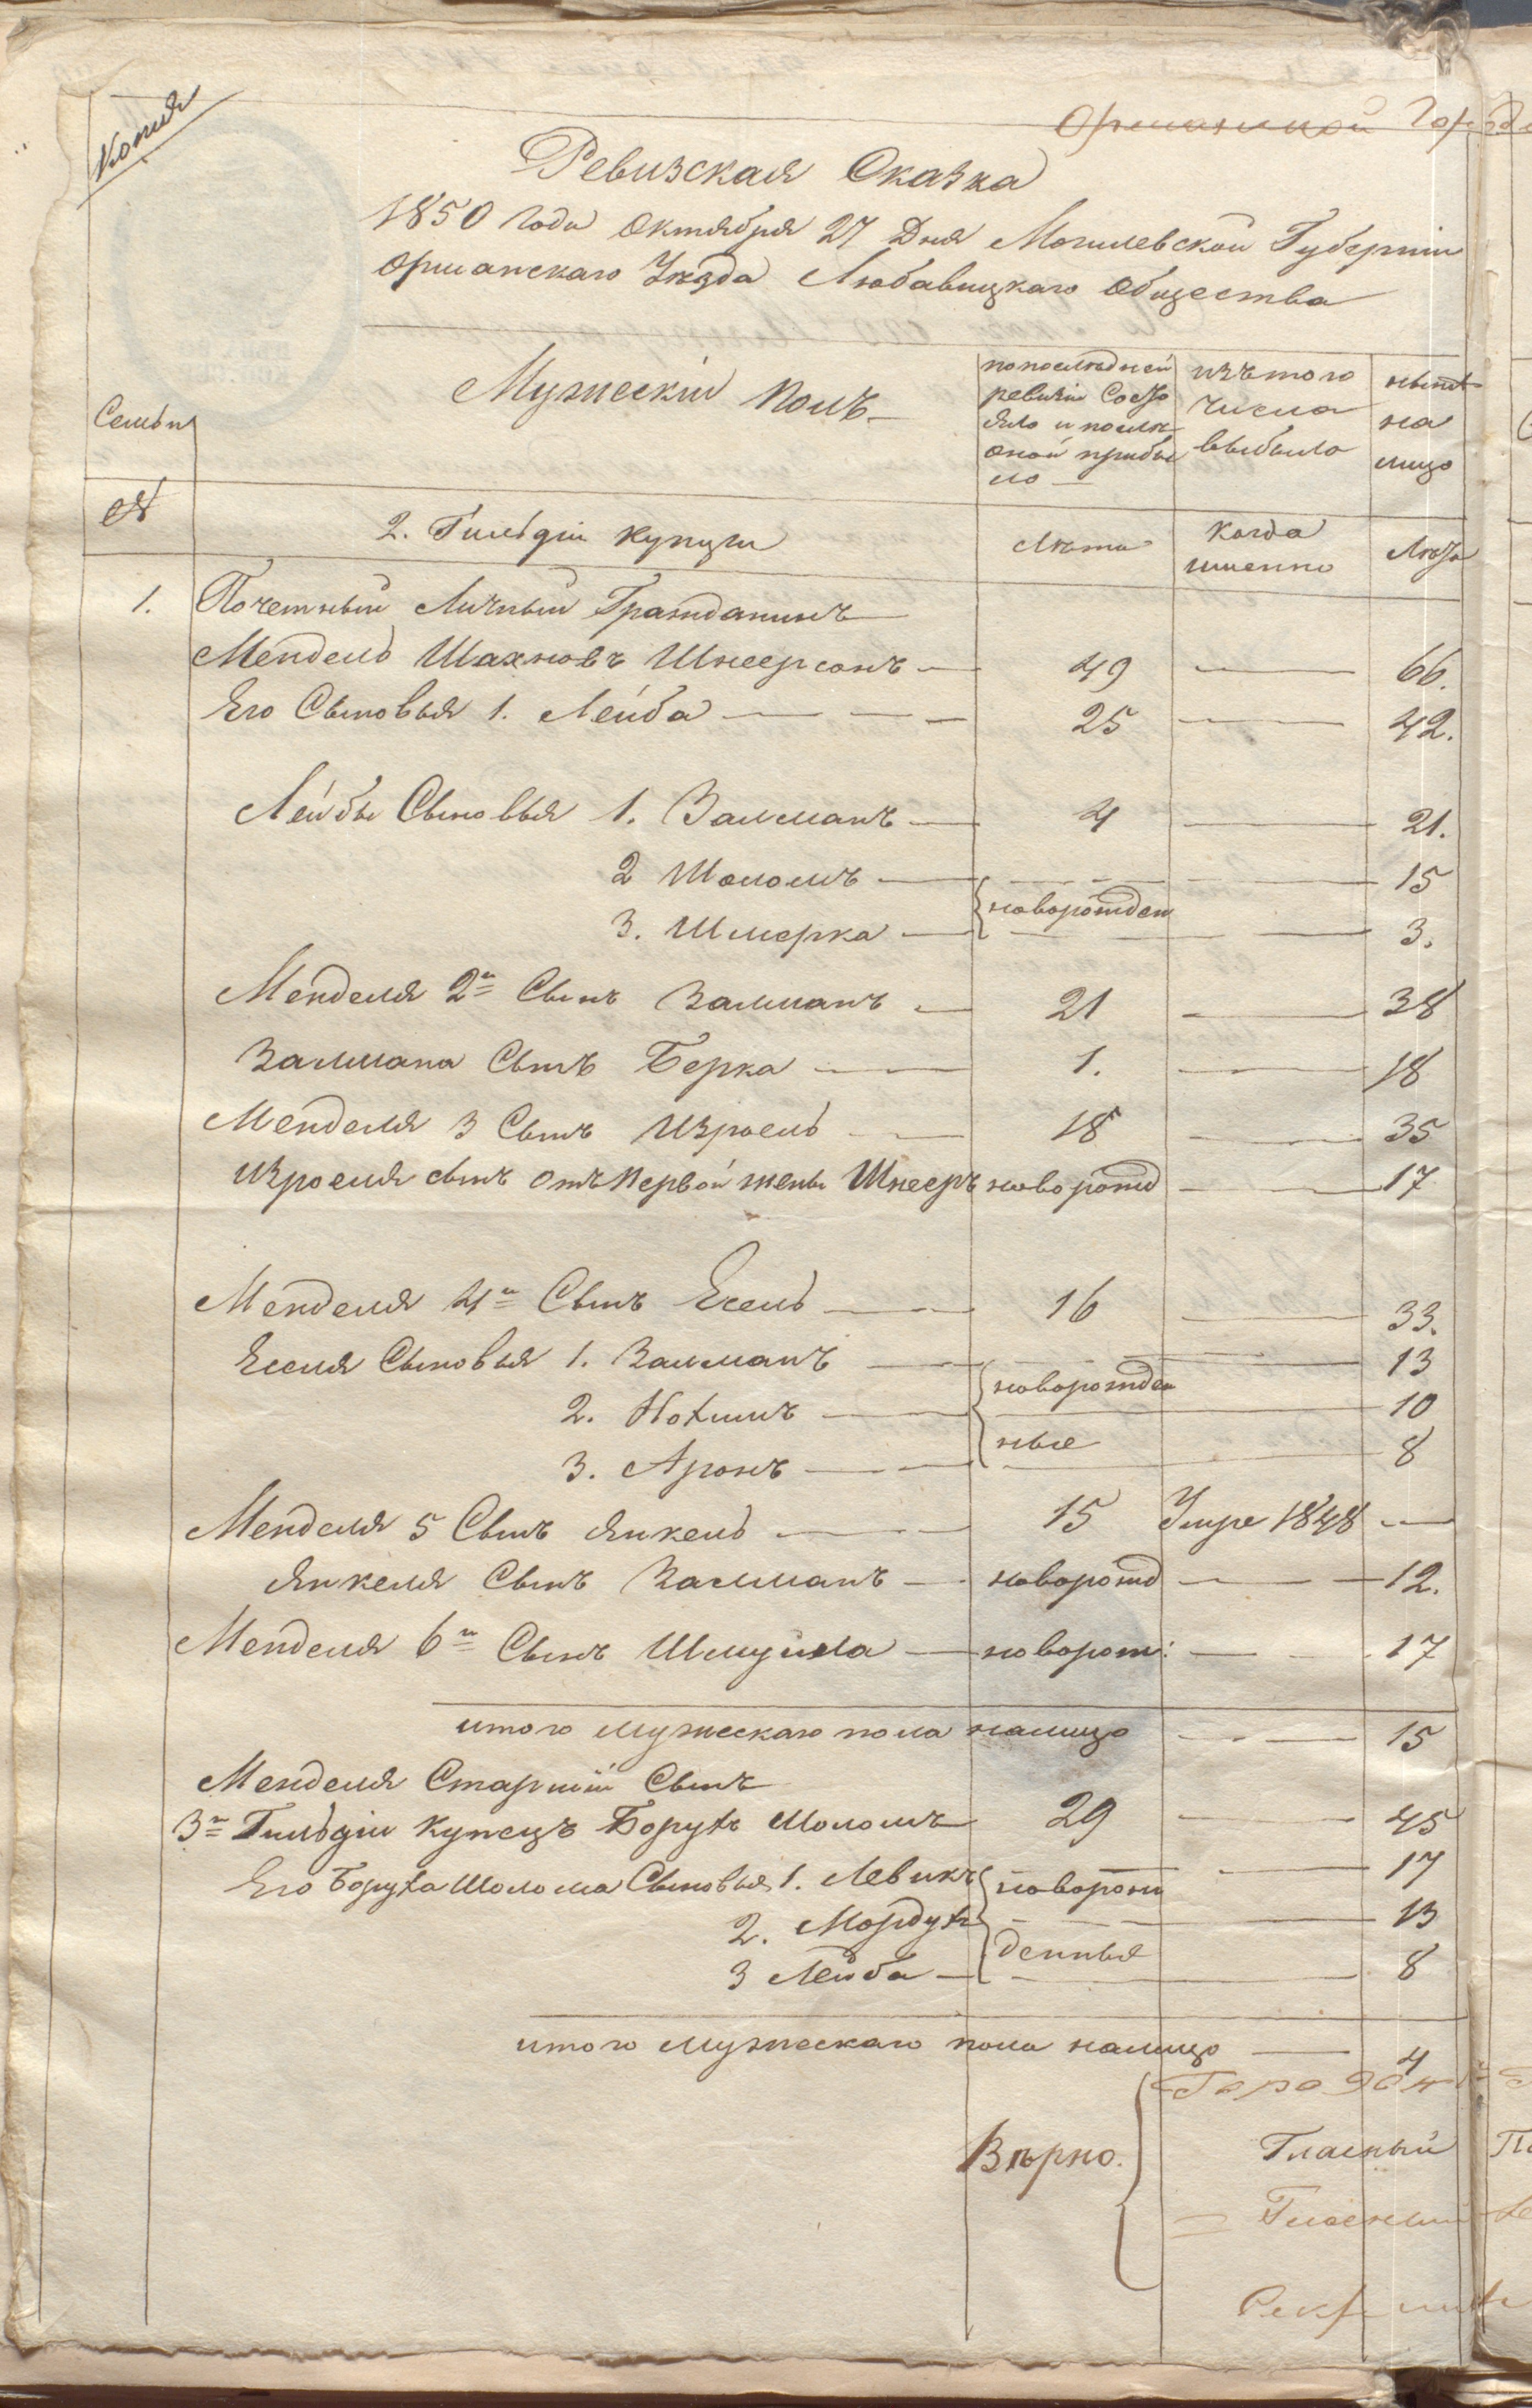 Копия
Оршанской Город
Ревизская Сказка
1850 года Октября 27 Дня Могилевской Губерніи
Оршанскаго Уѣзда Любавицкаго Общества
Семьи
Мужескій полъ
по последней ревизіи Состояло и после оной прибыло
изъ того числа выбыло
ныне на лицо
№
2. Гильдіи Купцы
Лѣта
Когда именно
Лѣта
1. Почетный Личный Гражданинъ
Мендель Шахновъ Шнеерсонъ 49 66.
Его Сыновья 1. Лейба 25 42.
Лейбы Сыновья 1. Залманъ 4 21.
2 Шоломъ 15
новорожден
3. Шмерка 3.
Менделя 2й Сынъ Залманъ 21 38
Залмана Сынъ Берка 1. 18
Менделя 3 Сынъ Израель 18 35
Изроеля сынъ отъ Первой жены Шнееръ новорожд 17
Менделя 4й Сынъ Есель 16 33.
Еселя Сыновья 1. Залманъ 13
новорожден
2. Нохимъ 10
ные
3. Аронъ 8
Менделя 5 Сынъ Янкель 15 Умре 1848
Янкеля Сынъ Залманъ новорожд 12.
Менделя 6й Сынъ Шмуила новорож: 17
итого мужескаго пола налицо 15
Менделя Старшій Сынъ
3й Гильдіи Купецъ Борухъ Шоломъ 29 45
Его Боруха Шолома Сыновья 1. Левикъ новорож 17
2. Мордухъ 13
денныя
3 Лейба 8
итого мужескаго пола налицо 4
Вѣрно.
Гласный
Гласный